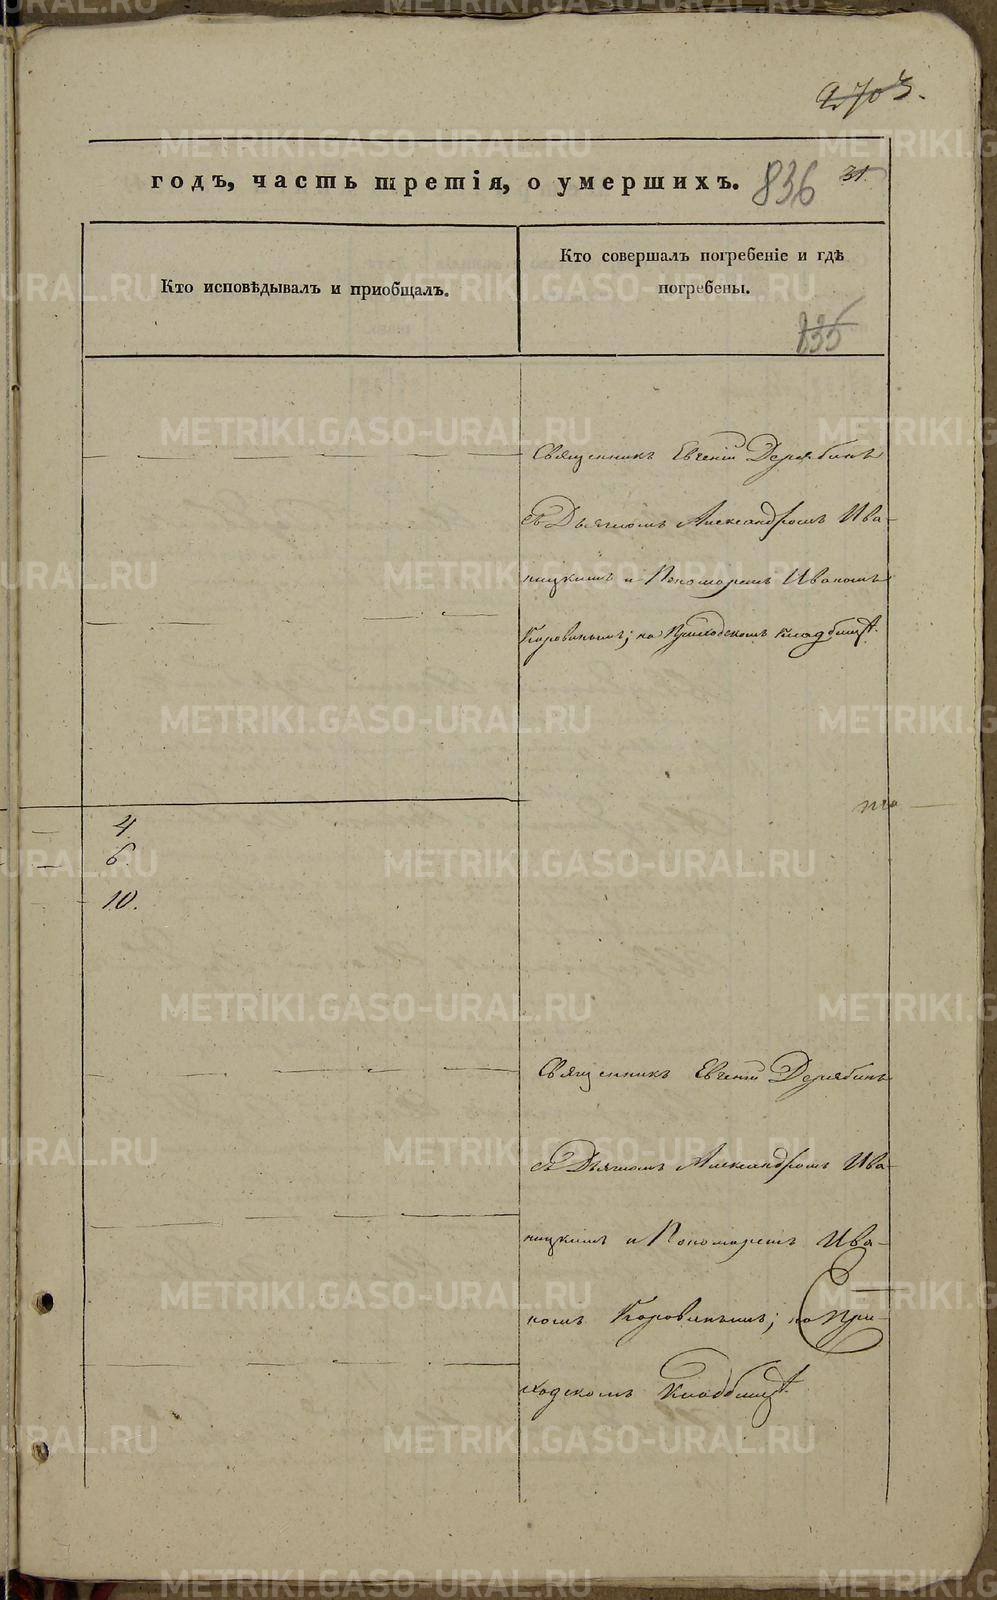 2703.
годъ, часть третія, о умершихъ.
836
31.
Кто исповѣдывалъ и приобщалъ.
Кто совершалъ погребеніе и гдѣ
погребены.
835
Священникъ Евгеній Дерябинъ
съ Дьячкомъ Александромъ Ива-
ницкимъ и Пономаремъ Иваномъ
Коровинымъ; на Приходскомъ кладбищѣ.
4.
6.
10.
Священникъ Евгеній Дерябинъ
съ Дьячкомъ Александромъ Ива-
ницкимъ и Пономаремъ Ива-
номъ Коровинымъ; на При-
ходскомъ кладбищѣ.
METRIKI.GASO-URAL.RU